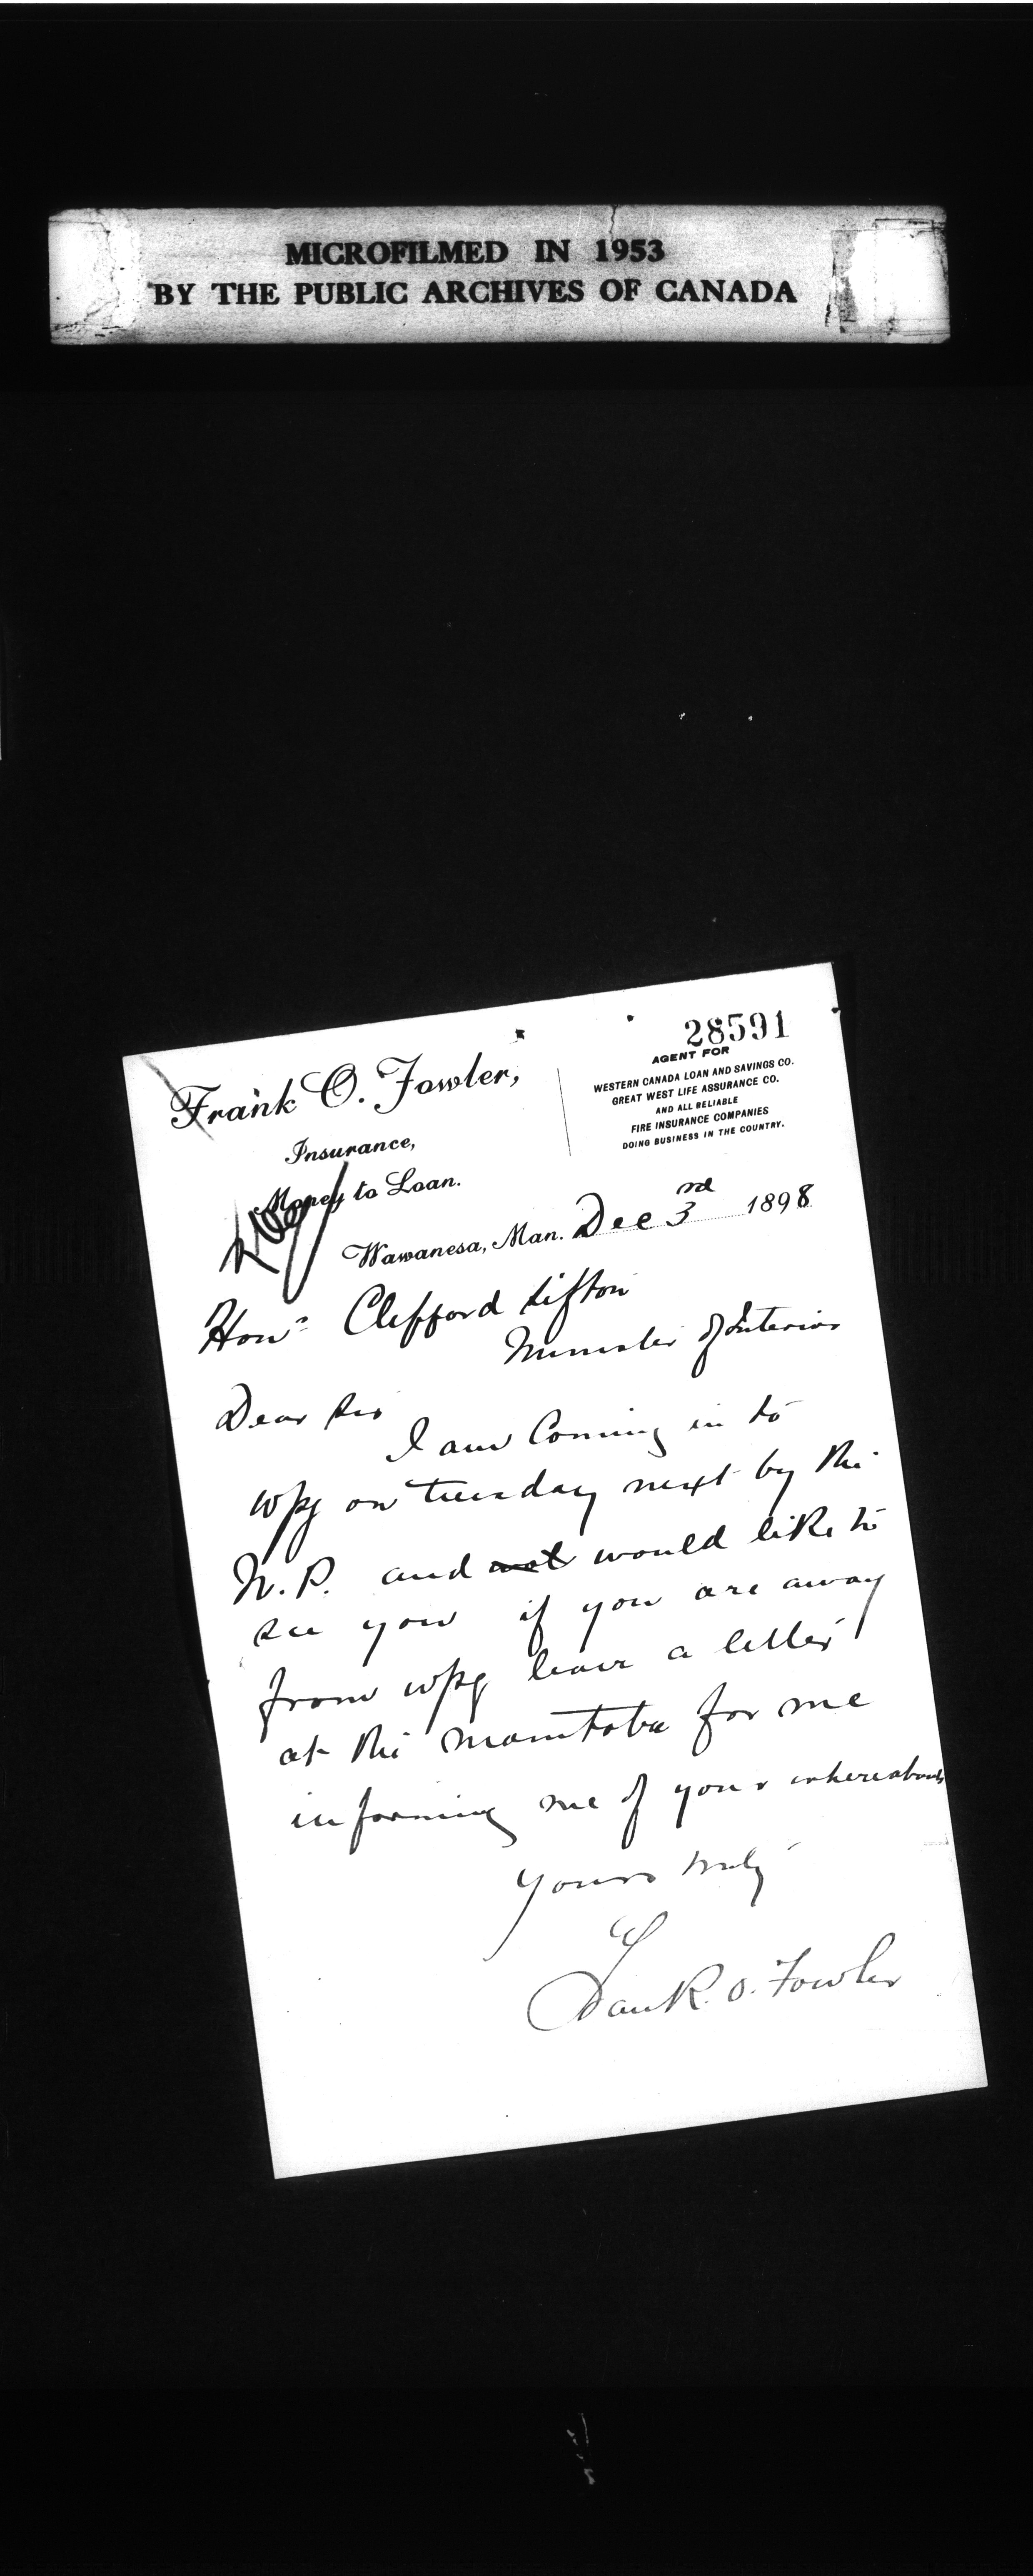 MICROFILMED IN 1953
BY THE PUBLIC ARCHIVES OF CANADA
28591
Frank O. Fowler,
Insurance,
Money to Loan.
AGENT FOR
WESTERN CANADA LOAN AND SAVINGS CO.
GREAT WEST LIFE ASSURANCE CO.
AND ALL RELIABLE
FIRE INSURANCE COMPANIES
DOING BUSINESS IN THE COUNTRY.
Wawanesa, Man. Dec 3rd 1898
Hon. Clifford Sifton
Minister of Interior
Dear Sir
I am Coming in to
Wpg on Tuesday next by the
N.P. and would like to
see you if you are away
from wpg leave a letter
at the manitoba for me
informing me of your whereabouts
Yours truly
Frank. O. Fowler